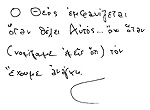 Ο Θεός εμφανίζεται
όταν θέλει Αυτός... όχι όταν
(νομίζουμε εμείς ότι) τον
έχουμε ανάγκη.